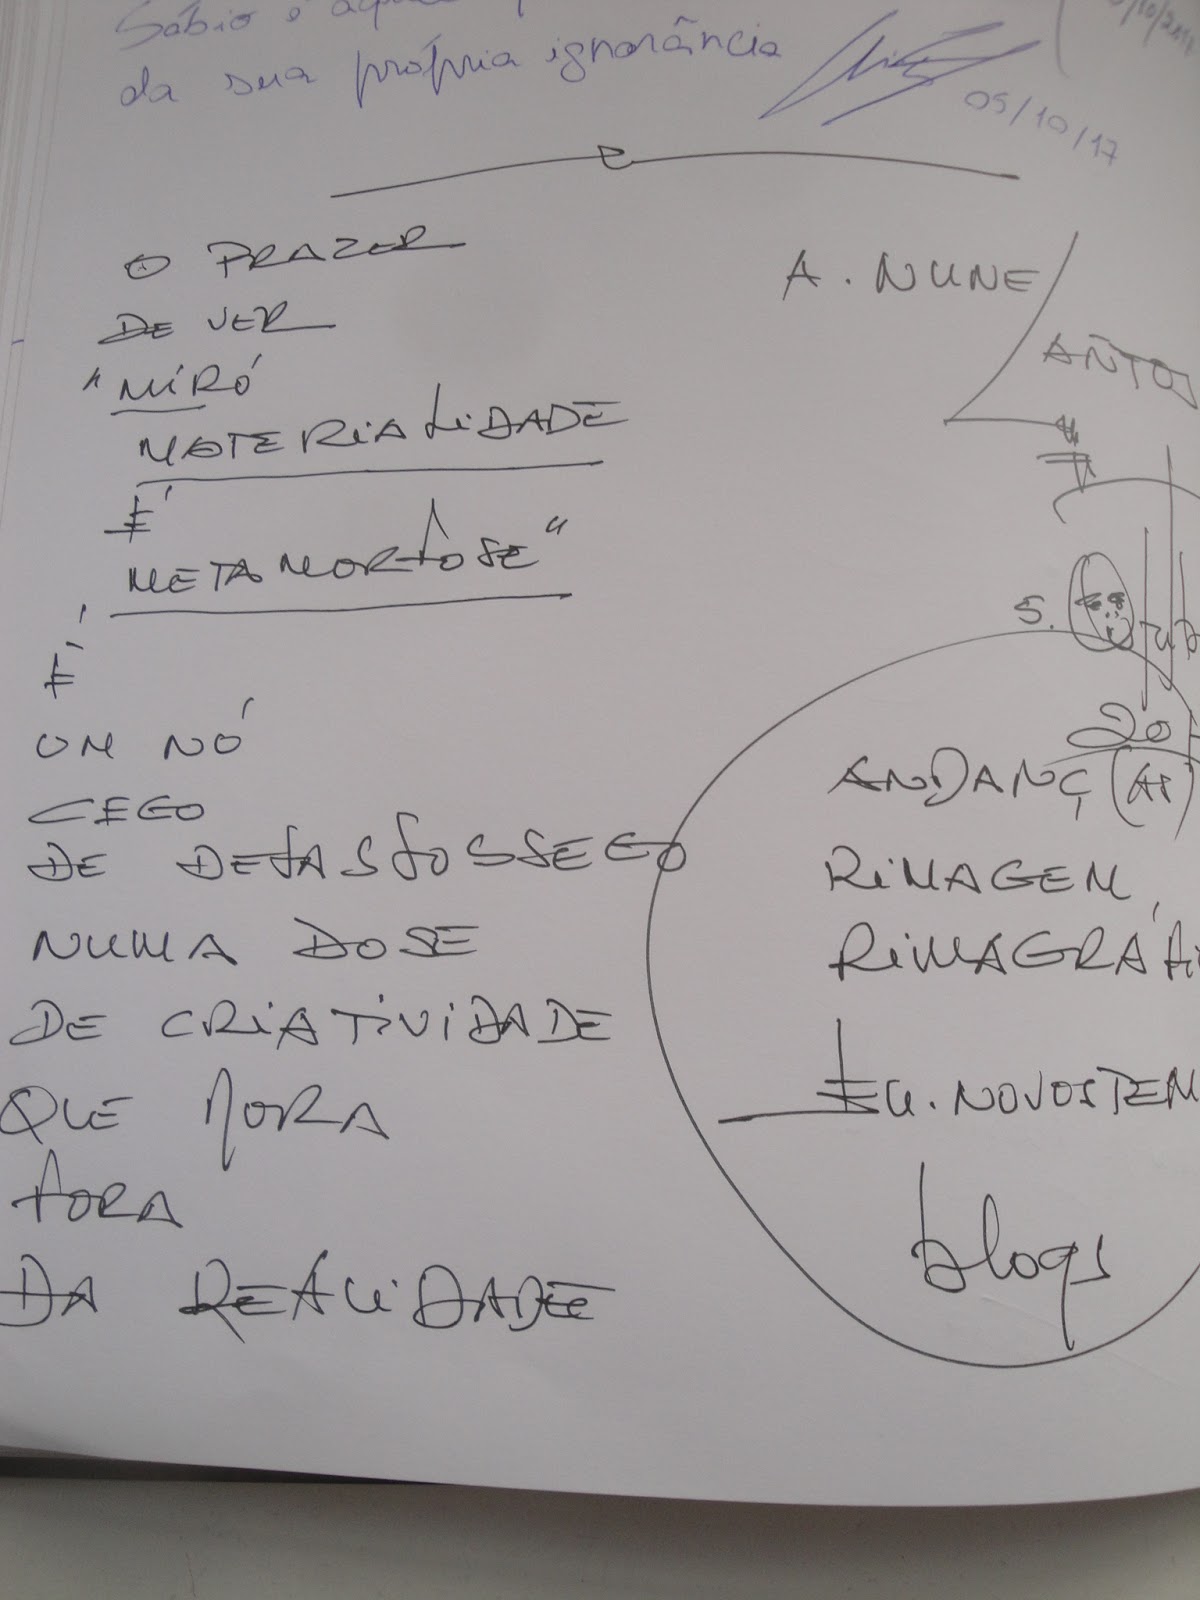 Sábio é
da sua própria ignorância
05/10/17
O PRAZER
DE VER
"MIRÓ
MATERIALIDADE
É
METAMORFOSE"
É
UM NÓ
CEGO
DE DEFASFOSSEGO
NUMA DOSE
DE CRIATIVIDADE
QUE MORA
FORA
DA REALIDADE
A. NUNE
ANTOS
S.
ANDANÇ(AS)
RIMAGEM
RIMAGRÁFI
EU. NOVOSTEM
blogs